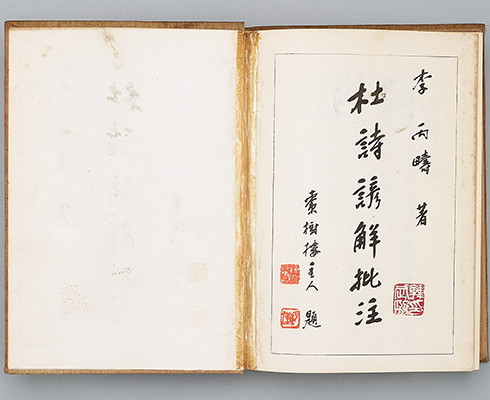 李丙疇 著
杜詩諺解批注
樹樓主人 題